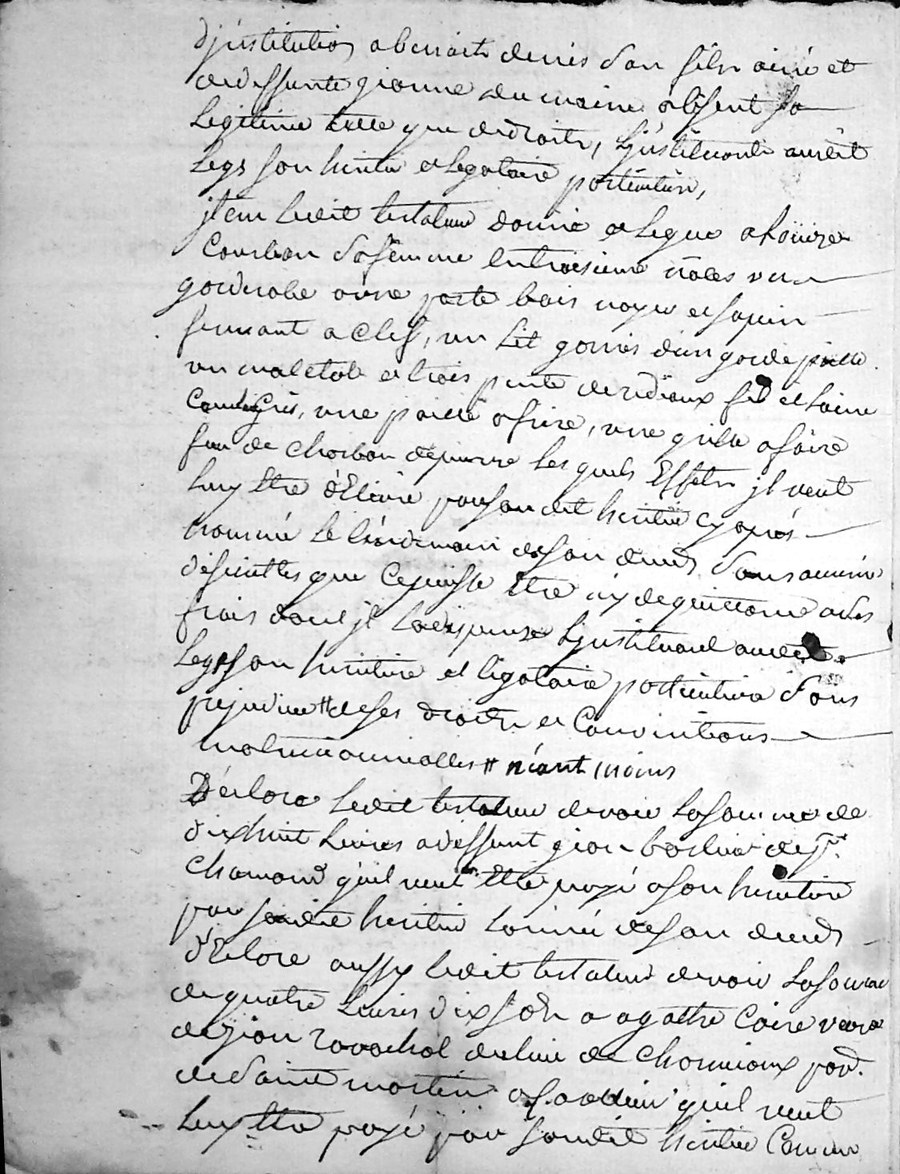 d'justitution a benoist denis son fils ainé et
de deffunte jeanne dumaine absent sa
Legitime telle que de droit, L'justituant audit
Legs son heritier et Legataire particulier,
jtem Ledit testateur donne et Legue a Loüize
Courbon sa femme en troisieme nôces une
garderobe a une porte bois noyer et sapin
fermant a clef, un Lit garnis d'un garde paille
un matelat et trois pente de rideaux fil et Laine
gris, une poille a frire, une grille a faire
feu de charbon de pierre Lesquels Effets jl veut
Luy être délivré par son dit heritier cy aprés
nommé Le Lendemain de son deceds sans aucunes
déficultes que ce puisse être ny de quittance a des
frais dont jl La dispense L'justituant audit
Legs son heritiere et legataire particuliere sans
prejudice # de ses droits et Conventions
matrimonialles # néant moins
Déclare Ledit testateur devoir La somme de
dixhuit Livres a deffunt jean de St.
Chamond qu'il veut être payé a son heritiere
par sondit heritier L'année de son deceds
déclare aussy Ledit testateur devoir La somme
de quatre Livres dix sols a agathe Coire veuve
de jean ravachol du Lieu de par.
de Saint martin qu'il veut
Luy être payé par sondit heritier Comme